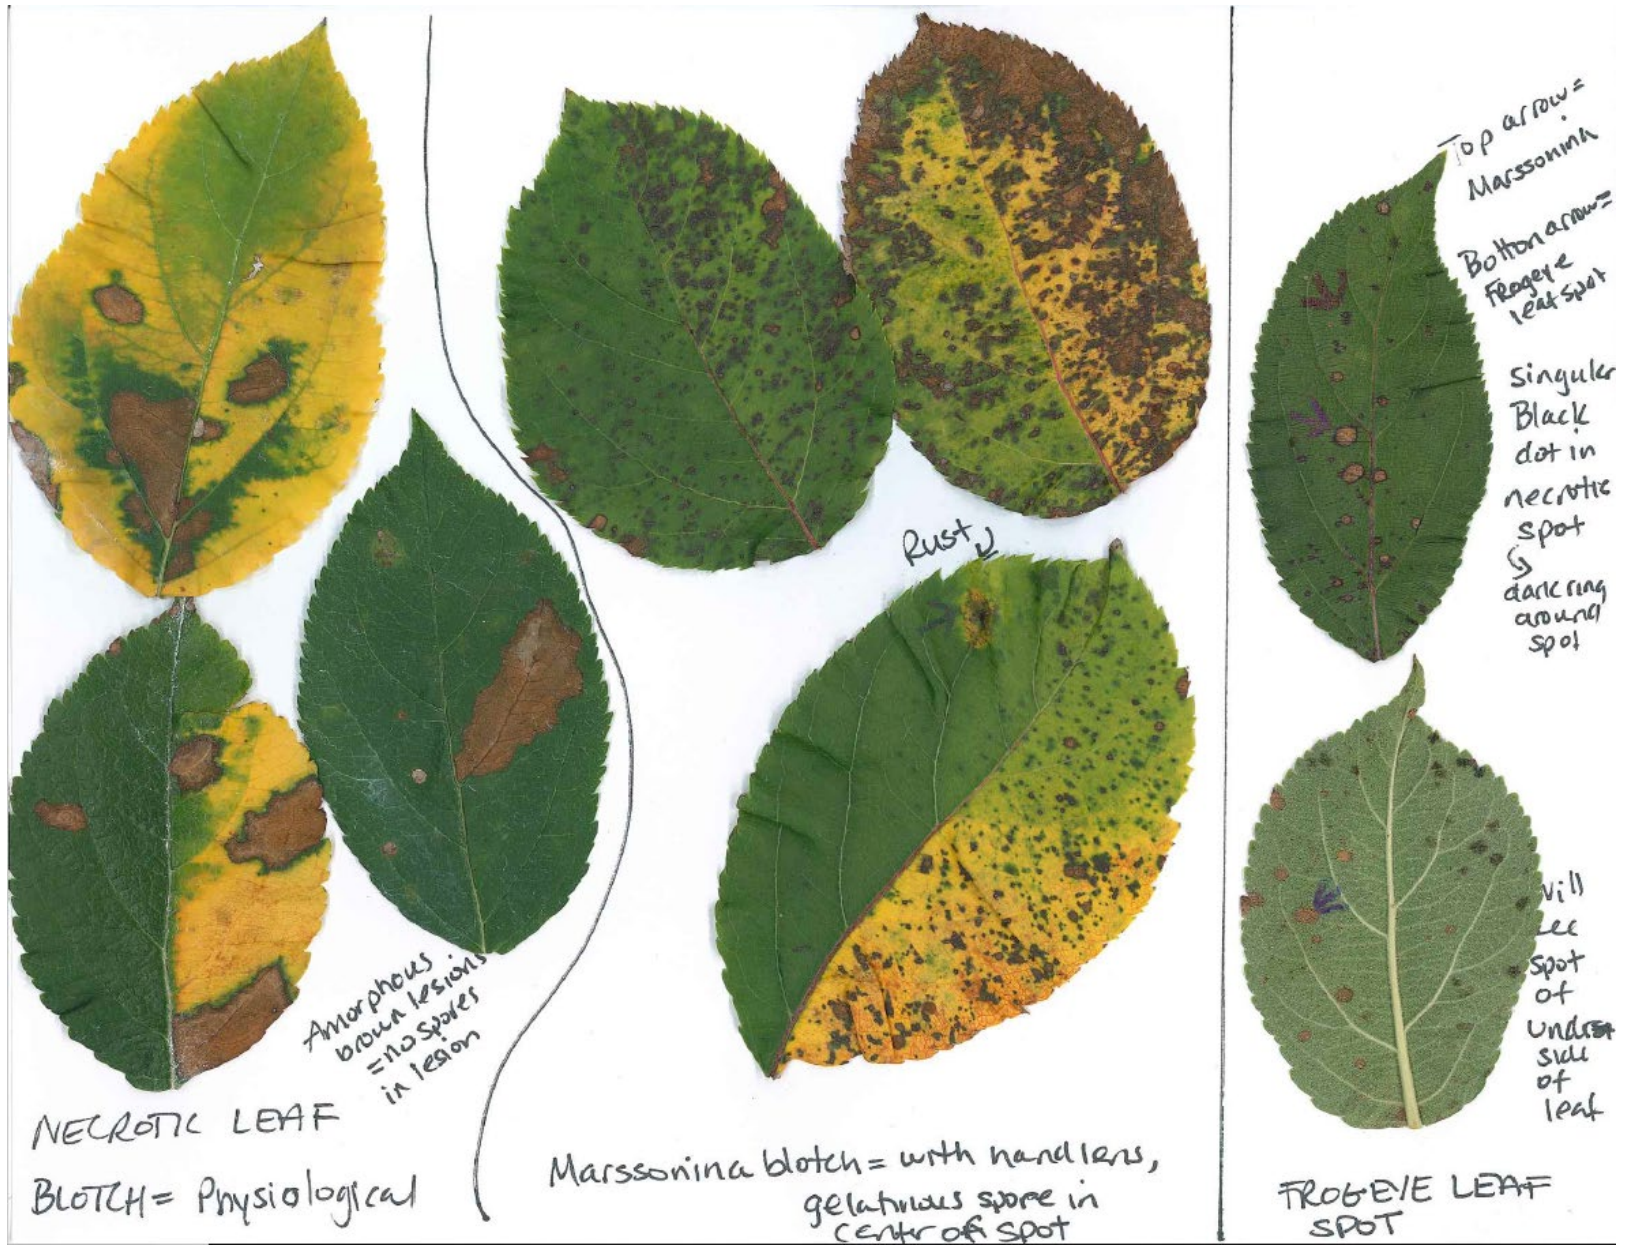 Amorphous
brown lesions
= no spores
in lesion
NECROTIC LEAF
BLOTCH = Physiological
Rust
Marssonina blotch = with handlens,
gelatinous spore in
center of spot
Top arrow =
Marssonina
Bottom arrow =
Frogeye
leaf spot
Singular
Black
dot in
necrotic
spot
dark ring
around
spot
will
see
spot
of
underst
side
of
leaf
FROGEYE LEAF
SPOT